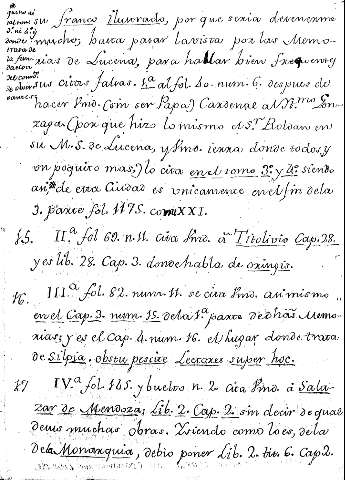 su franco Ilustrado, por que seria detenerme
mucho; basta pasar la vista por las Memo-
rias de Lucena, para hallar bien frequentes
sus citas falsas. I.ª al fol. 40. num. 6. despues de
hacer Vmd. (sin ser Papa) Cardenal a
zaga. (por que hizo lo mismo el S.r Roldan en
su M.S. de Lucena, y Vmd. ierra donde todos, y
un poquito mas;) lo cita en el tomo 3.º y 4.º siendo
asi de esta Ciudad es unicamente en el fin de la
3. parte fol. 1175. con XXI.
15. II.ª fol 69. n. 11. cita Vmd. á Titolivio Cap. 28.
y es lib. 28. Cap. 3. donde habla de oringis.
16. III.ª fol. 82. num. 11. se cita Vmd. asi mismo
en el Cap. 3. num. 15. de la 1.ª parte de dhas Memo-
rias; y es el Cap. 4. num. 16. el lugar donde trata
de Silpia. obstupescite Lectores super hoc.
17 IV.ª fol. 145. y buelto n. 2. cita Vmd. á Sala-
zar de Mendoza; Lib. 2. Cap. 2. sin decir de qual
de sus muchas obras. Y siendo como lo es, de la
de la Monarquia, debio poner Lib. 2. tit. 6. Cap. 2.